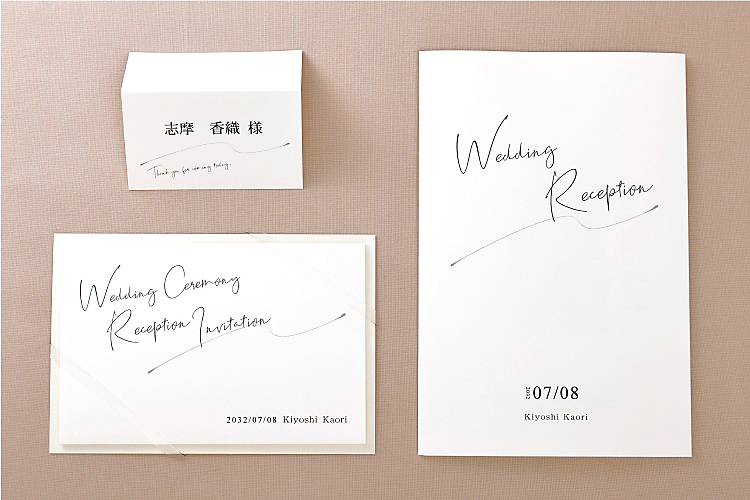 志摩 香織 様
Thank you for coming today.
Wedding Ceremony
Reception Invitation
2032/07/08 Kiyoshi Kaori
Wedding
Reception
2032 07/08
Kiyoshi Kaori